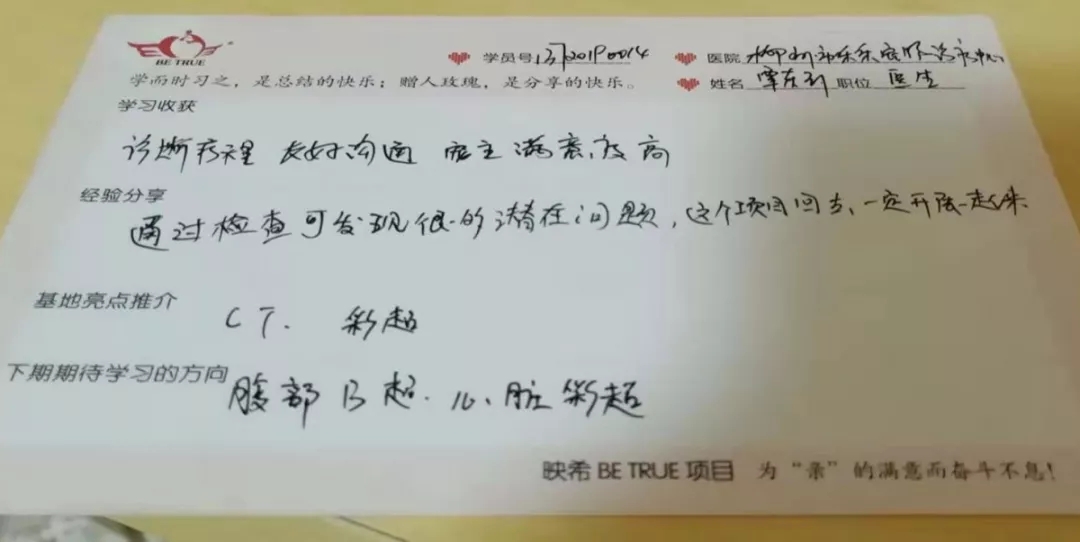 BE TRUE
学员号 131201900014
医院 柳州市乐乐宠物诊疗中心
学而时习之，是总结的快乐；赠人玫瑰，是分享的快乐。
姓名 职位 医生
学习收获
诊断流程 友好沟通 宠主满意度高
经验分享
通过检查可发现很多的潜在问题，这个项目回去、一定开展起来
基地亮点推介
CT. 彩超
下期期待学习的方向
腹部B超.心脏彩超
映希 BE TRUE 项目 为“亲”的满意而奋斗不息!